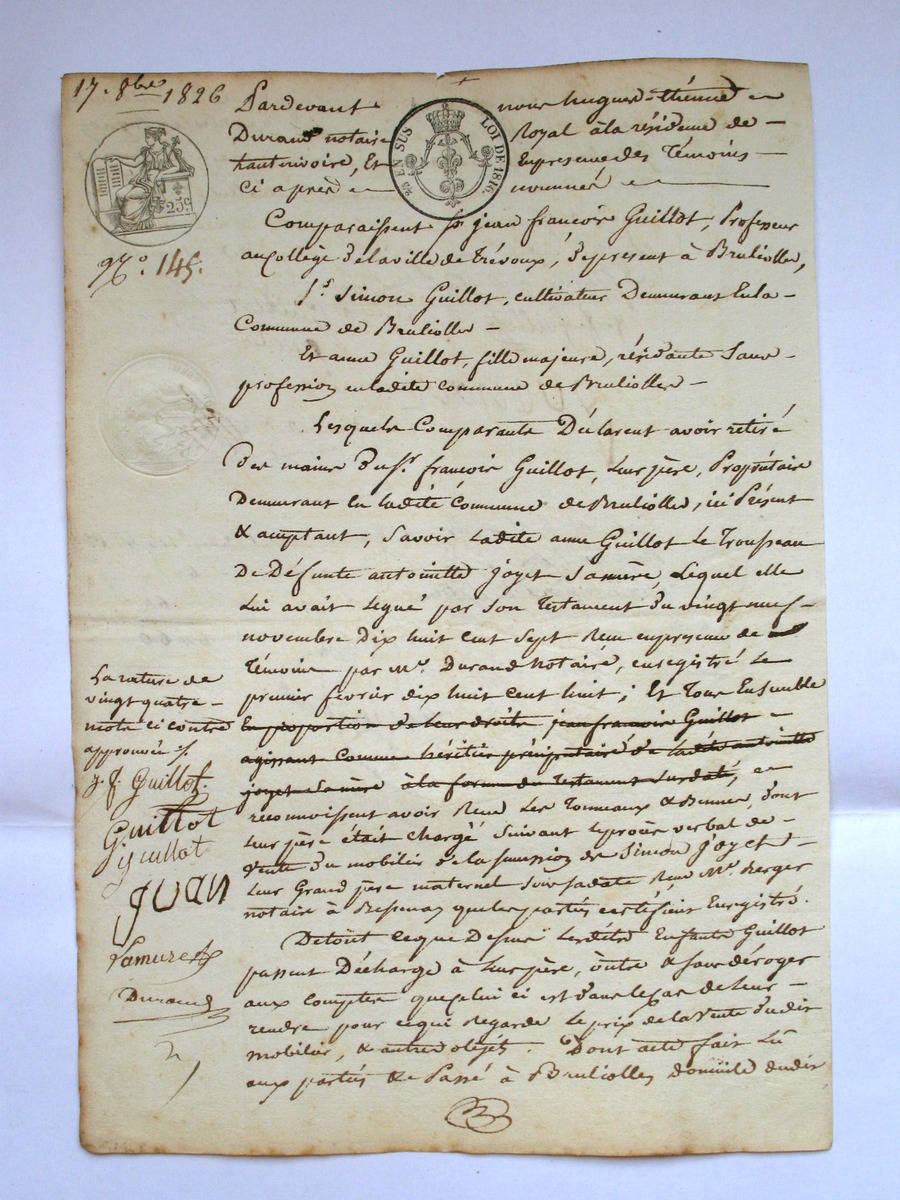 17. 8bre 1826
Pardevant nous hugues-thénné
Durand notaire Royal à la résidence de
hauterivoire, Et En presence des Témoins
ci après nommés
EN SUS LOI DE 1816.
25c.
No. 145.
Comparaissent Sr. jean françois Guillot, Professeur
au Collège de la ville de Trévoux, de present à Brulioles,
Sr. Simon Guillot, cultivateur Demeurant En la
Commune de Brulioles
Et anne Guillot, fille majeure, résidante Sans
profession en ladite commune de Brulioles
Lesquels Comparants Déclarent avoir retiré
Des mains du Sr. françois Guillot, leur père, Propriétaire
Demeurant en ladite Commune de Brulioles, ici Présent
& acceptant, Savoir ladite anne Guillot Le Trousseau
De Défunte antoinette joyet Sa mère, Lequel elle
Lui avait Legué par Son Testament du vingt neuf
novembre Dix huit cent sept Reçu en presence de
Témoins par Me. Durand Notaire, enregistré Le
premier février dix huit cent huit ; Et Tous Ensemble
En proportion de leurs droits jean françois Guillot
agissant Comme héritier préciputaire de ladite antoinette
joyet Sa mère à la forme du Testament Susdaté,
reconnoissent avoir Reçu Les Tonneaux & Bennes, dont
Leur père était chargé Suivant le procès verbal de
vente du mobilier de la succession de Simon joyet
Leur Grand père maternel Sous sa date Reçu Me. Berger
notaire à Bessenay que les parties certifient Enregistré.
De tout ce que Dessus Lesdits Enfants Guillot
passent Décharge à Leur père, outre & Sans déroger
aux comptes que celui ci est dans le cas de leur
rendre pour ce qui Regarde Le prix de la vente dudit
mobilier, & autres objets. Dont acte fait Lû
aux parties & Passé à Brulioles domicile dudit
La rature de
vingt quatre
mots ci contre
approuvée ./.
j. f. Guillot.
Guillot
Guillot
JUAN
Lamure
Durand